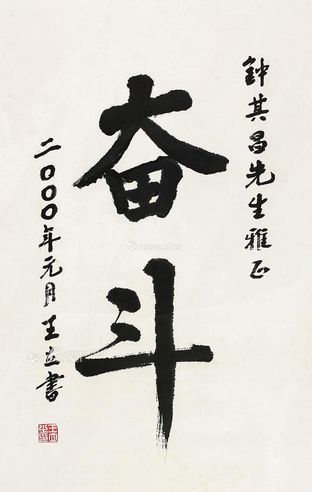 鈡其昌先生雅正
奋斗
二〇〇〇年元月王立书